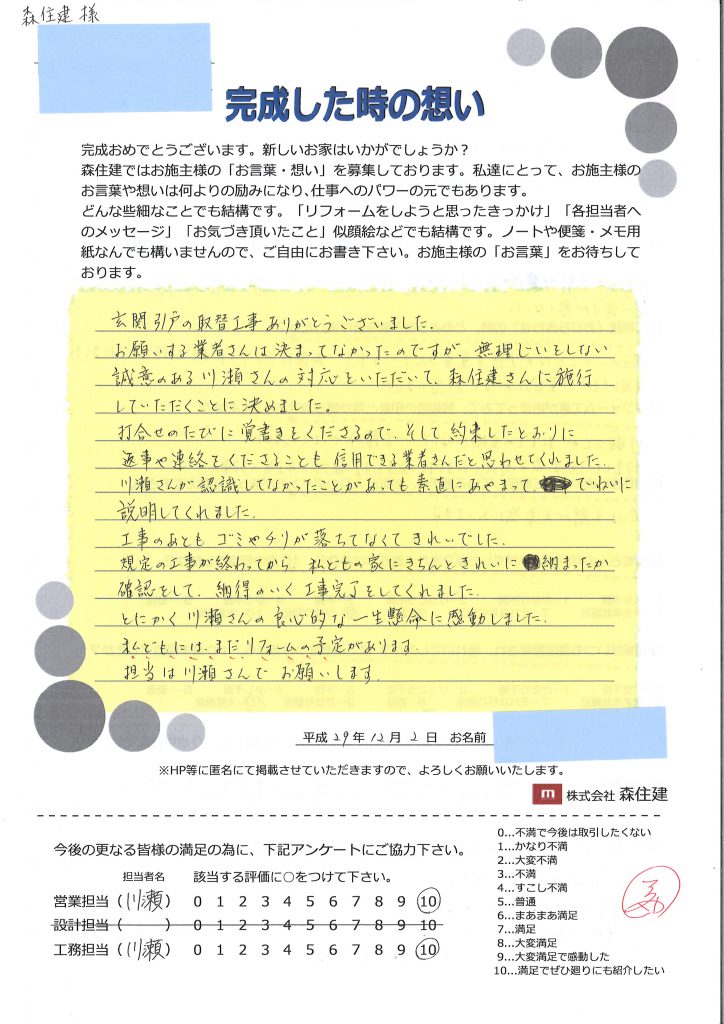 森住建 様
完成した時の想い
完成おめでとうございます。新しいお家はいかがでしょうか？
森住建ではお施主様の「お言葉・想い」を募集しております。私達にとって、お施主様の
お言葉や想いは何よりの励みになり、仕事へのパワーの元でもあります。
どんな些細なことでも結構です。「リフォームをしようと思ったきっかけ」「各担当者へ
のメッセージ」「お気づき頂いたこと」似顔絵などでも結構です。ノートや便箋・メモ用
紙なんでも構いませんので、ご自由にお書き下さい。お施主様の「お言葉」をお待ちして
おります。
玄関引戸の取替工事ありがとうございました。
お願いする業者さんは決まってなかったのですが、無理じいをしない
誠意のある川瀬さんの対応をいただいて、森住建さんに施行
していただくことに決めました。
打合せのたびに覚書きをくださるので、そして約束したとおりに
返事や連絡をくださることも信用できる業者さんだと思わせてくれました。
川瀬さんが認識してなかったことがあっても素直にあやまって、ていねいに
説明してくれました。
工事のあともゴミやチリが落ちてなくてきれいでした。
規定の工事が終わってから私どもの家にきちんときれいに納まったか
確認をして、納得のいく工事完了をしてくれました。
とにかく川瀬さんの良心的な一生懸命に感動しました。
私どもには、まだリフォームの予定があります。
担当は川瀬さんでお願いします。
平成 29 年 12 月 2 日 お名前
※HP等に匿名にて掲載させていただきますので、よろしくお願いいたします。
m 株式会社 森住建
今後の更なる皆様の満足の為に、下記アンケートにご協力下さい。
担当者名 該当する評価に○をつけて下さい。
営業担当（川瀬） 0 1 2 3 4 5 6 7 8 9 10
設計担当（ ） 0 1 2 3 4 5 6 7 8 9 10
工務担当（川瀬） 0 1 2 3 4 5 6 7 8 9 10
0…不満で今後は取引したくない
1…かなり不満
2…大変不満
3…不満
4…すこし不満
5…普通
6…まあまあ満足
7…満足
8…大変満足
9…大変満足で感動した
10…満足でぜひ廻りにも紹介したい